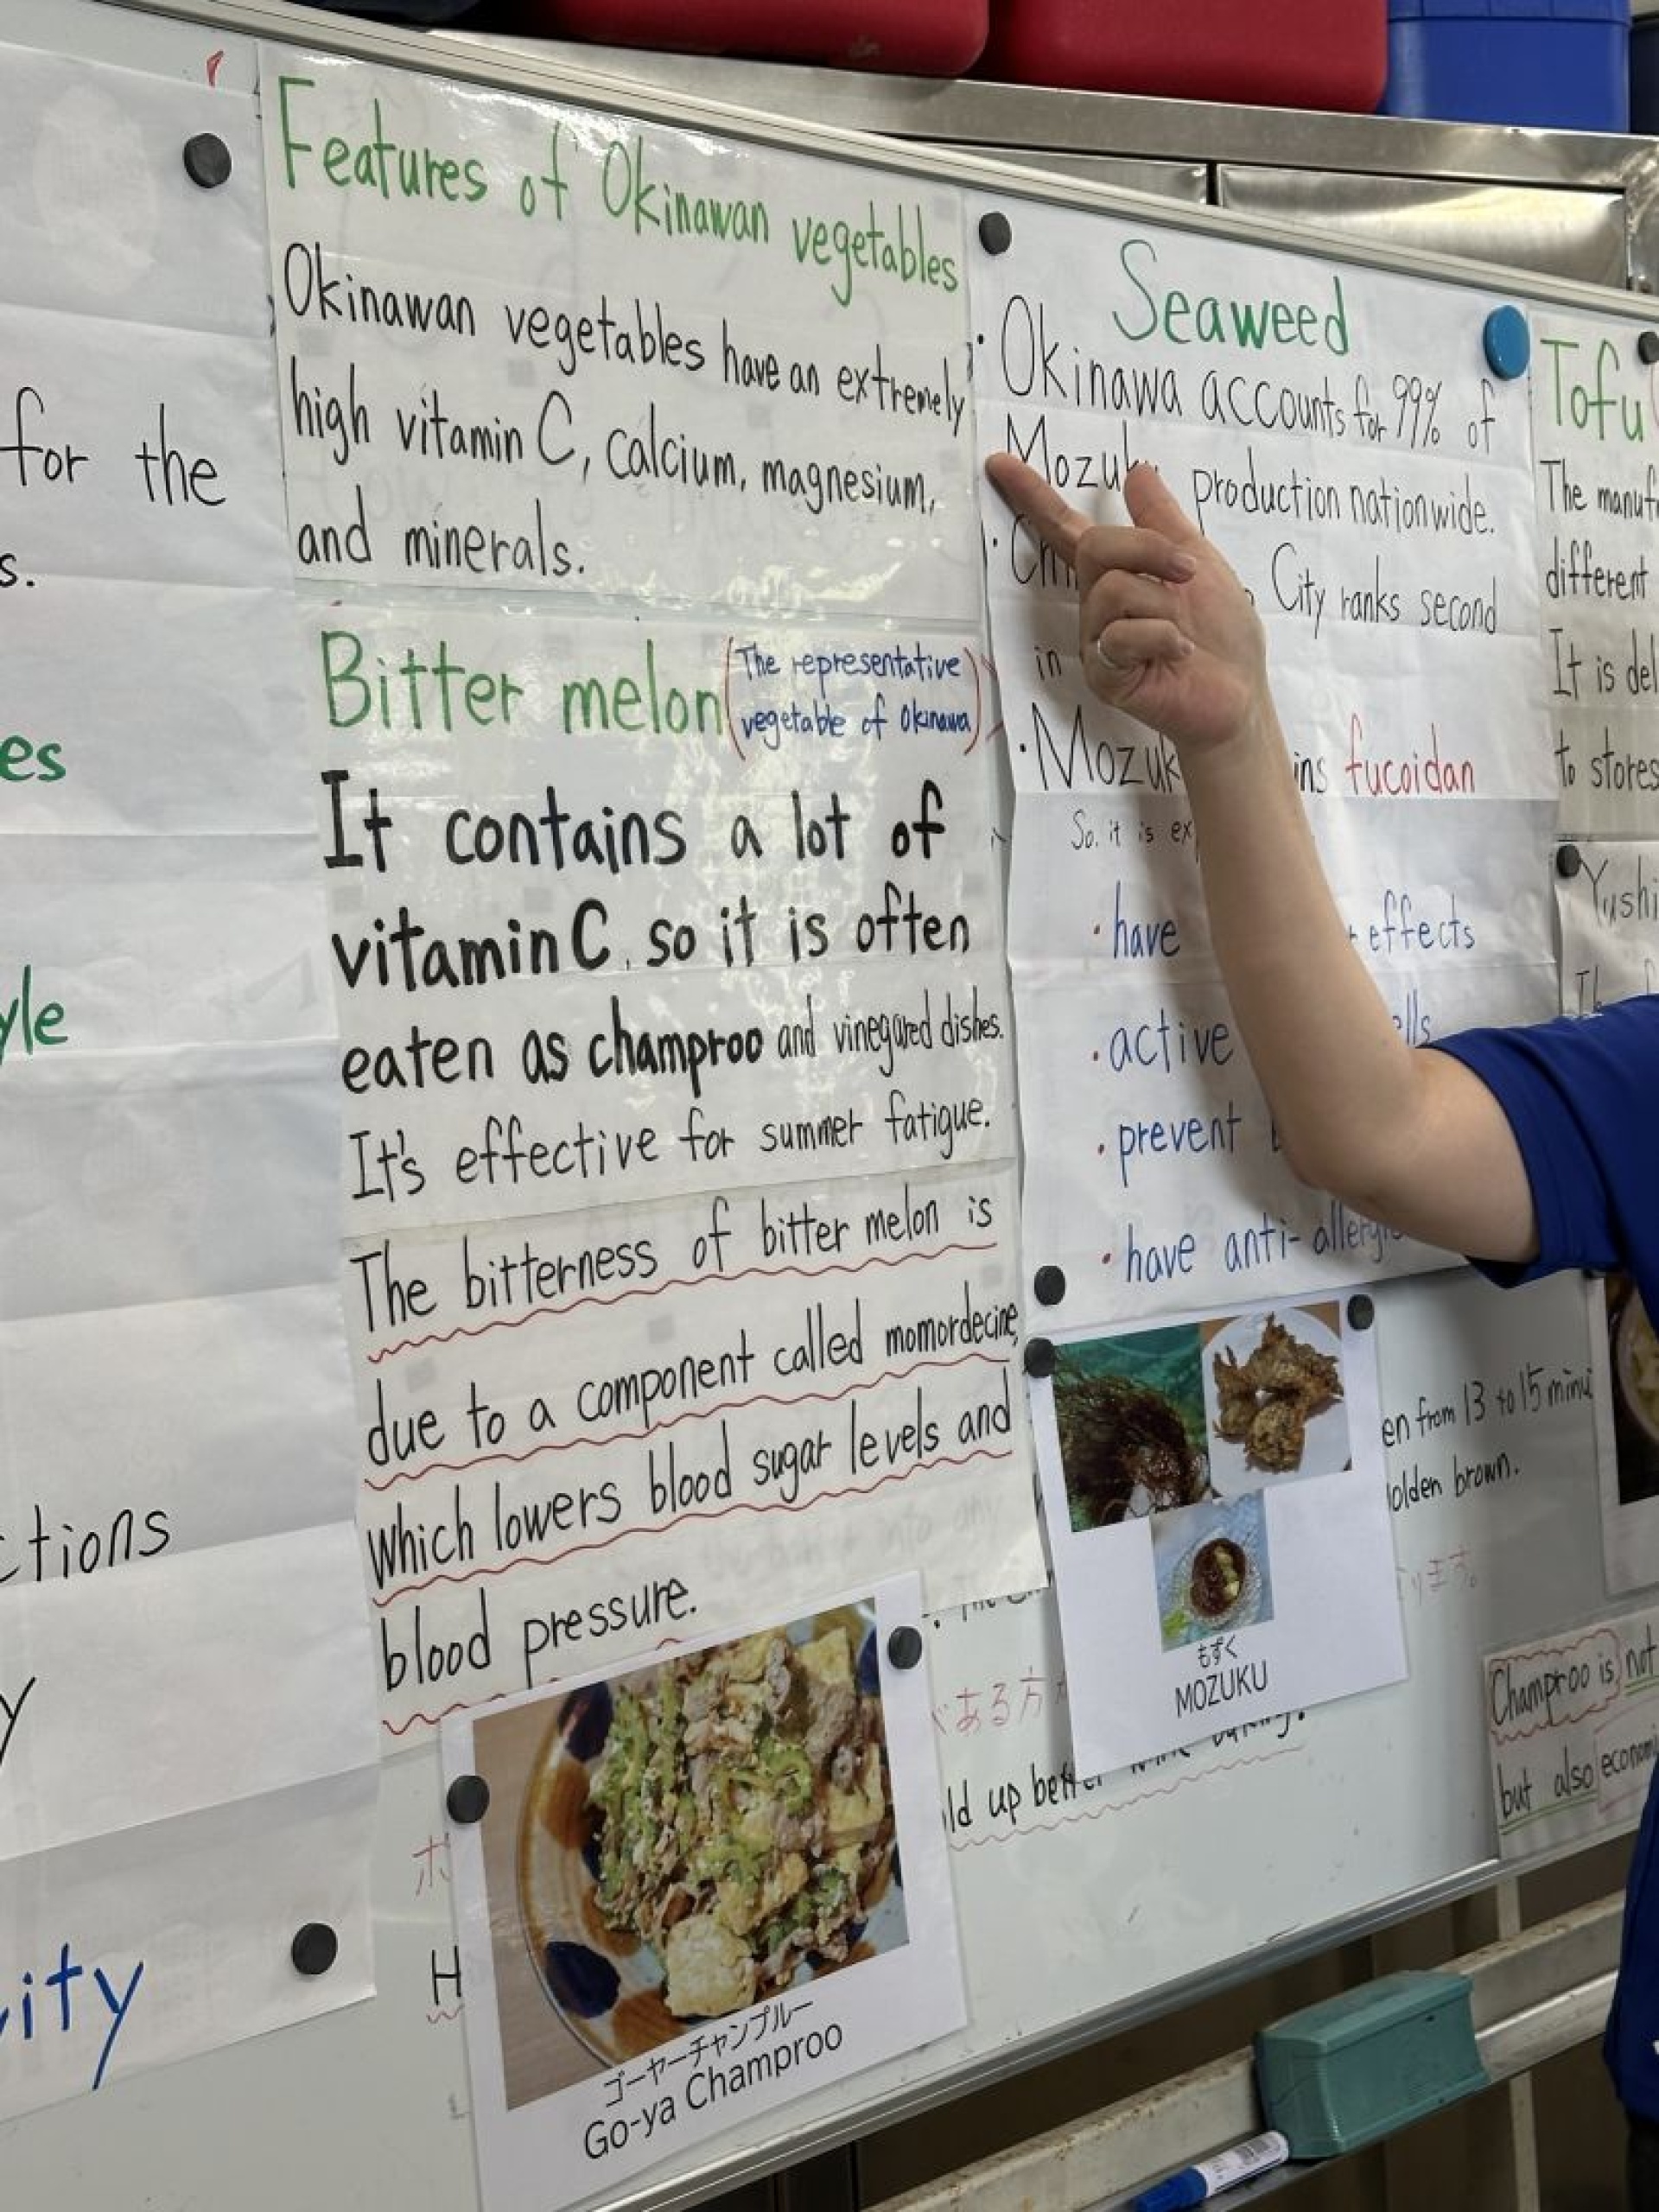 for the
s.
es
yle
ctions
y
ity
Features of Okinawan vegetables
Okinawan vegetables have an extremely
high vitamin C, calcium, magnesium,
and minerals.
Bitter melon (The representative
vegetable of Okinawa)
It contains a lot of
vitamin C, so it is often
eaten as champroo and vinegared dishes.
It's effective for summer fatigue.
The bitterness of bitter melon is
due to a component called momordecine,
which lowers blood sugar levels and
blood pressure.
ゴーヤーチャンプルー
Go-ya Champroo
H
Seaweed
・Okinawa accounts for 99% of
Mozuku production nationwide.
City ranks second
in
・Mozuk ins fucoidan
So, it is ex
・have effects
・active ells
・prevent
・have anti-allergic
もずく
MOZUKU
en from 13 to 15 minu
olden brown.
ります。
がある方が
ld up better
Tofu
The manuf
different
It is del
to stores
Yushi
Champroo is not
but also economi